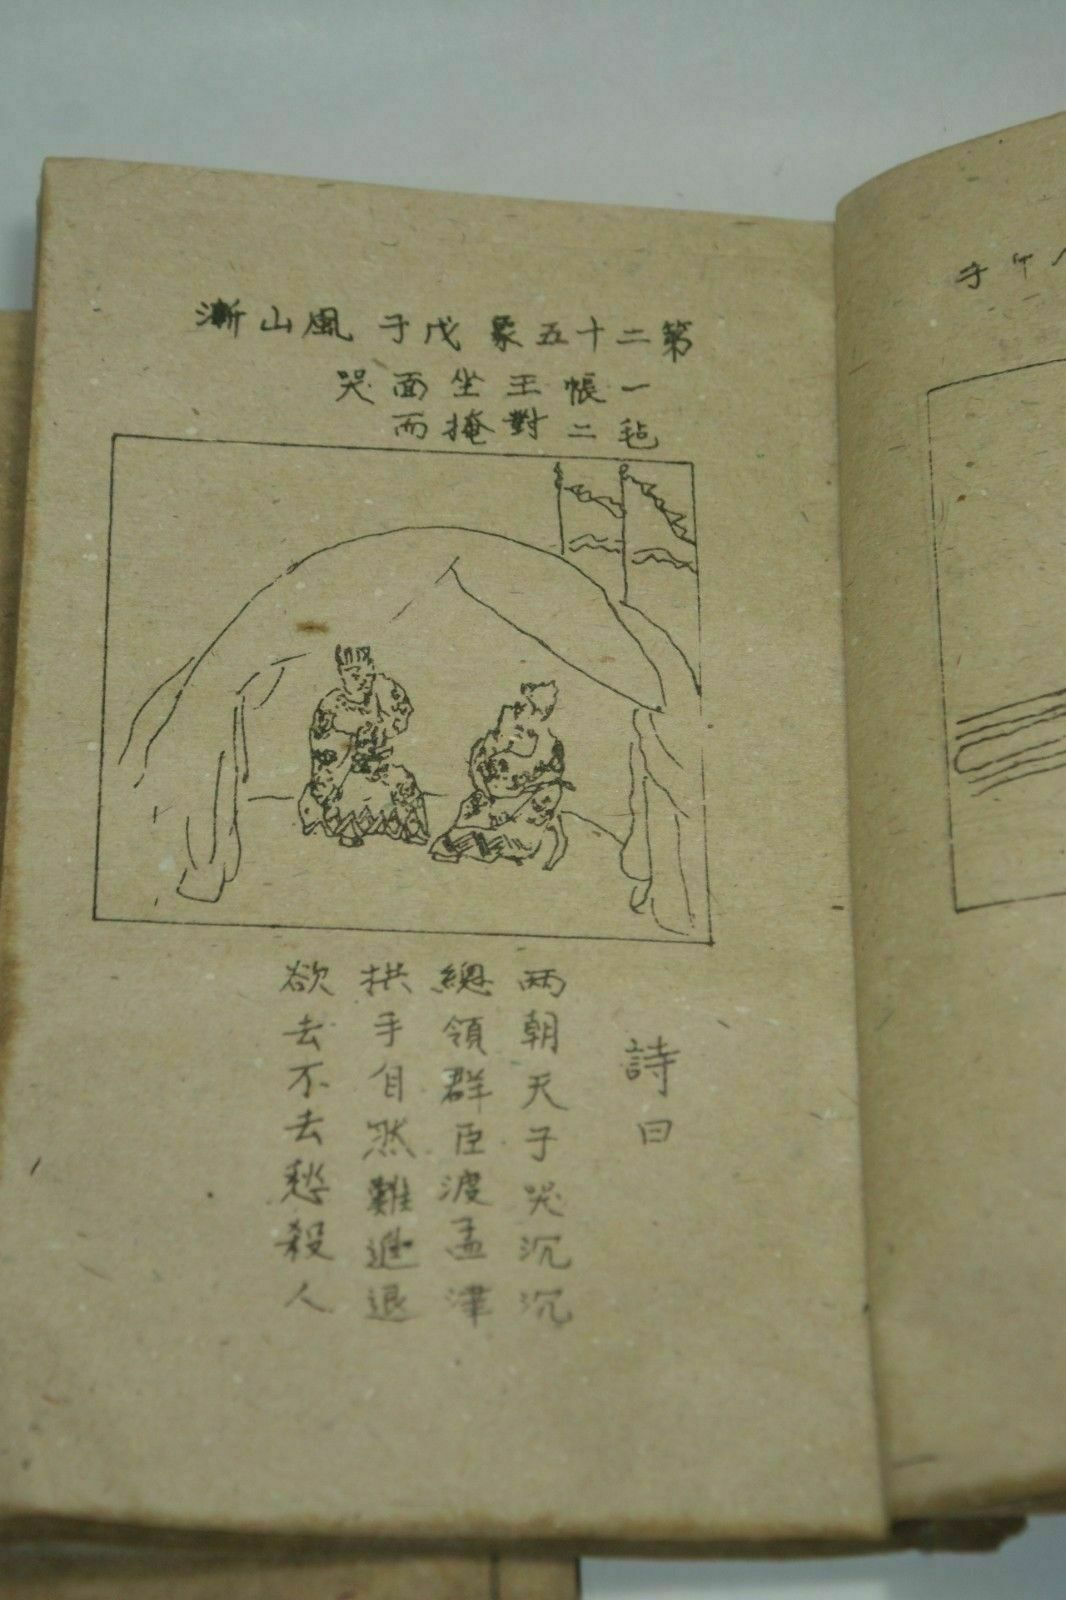 第二十五象 戊子 風山漸
一毡帳二王對坐掩面而哭
詩曰
两朝天子哭沉沉
總領群臣渡孟津
拱手自然難進退
欲去不去愁殺人